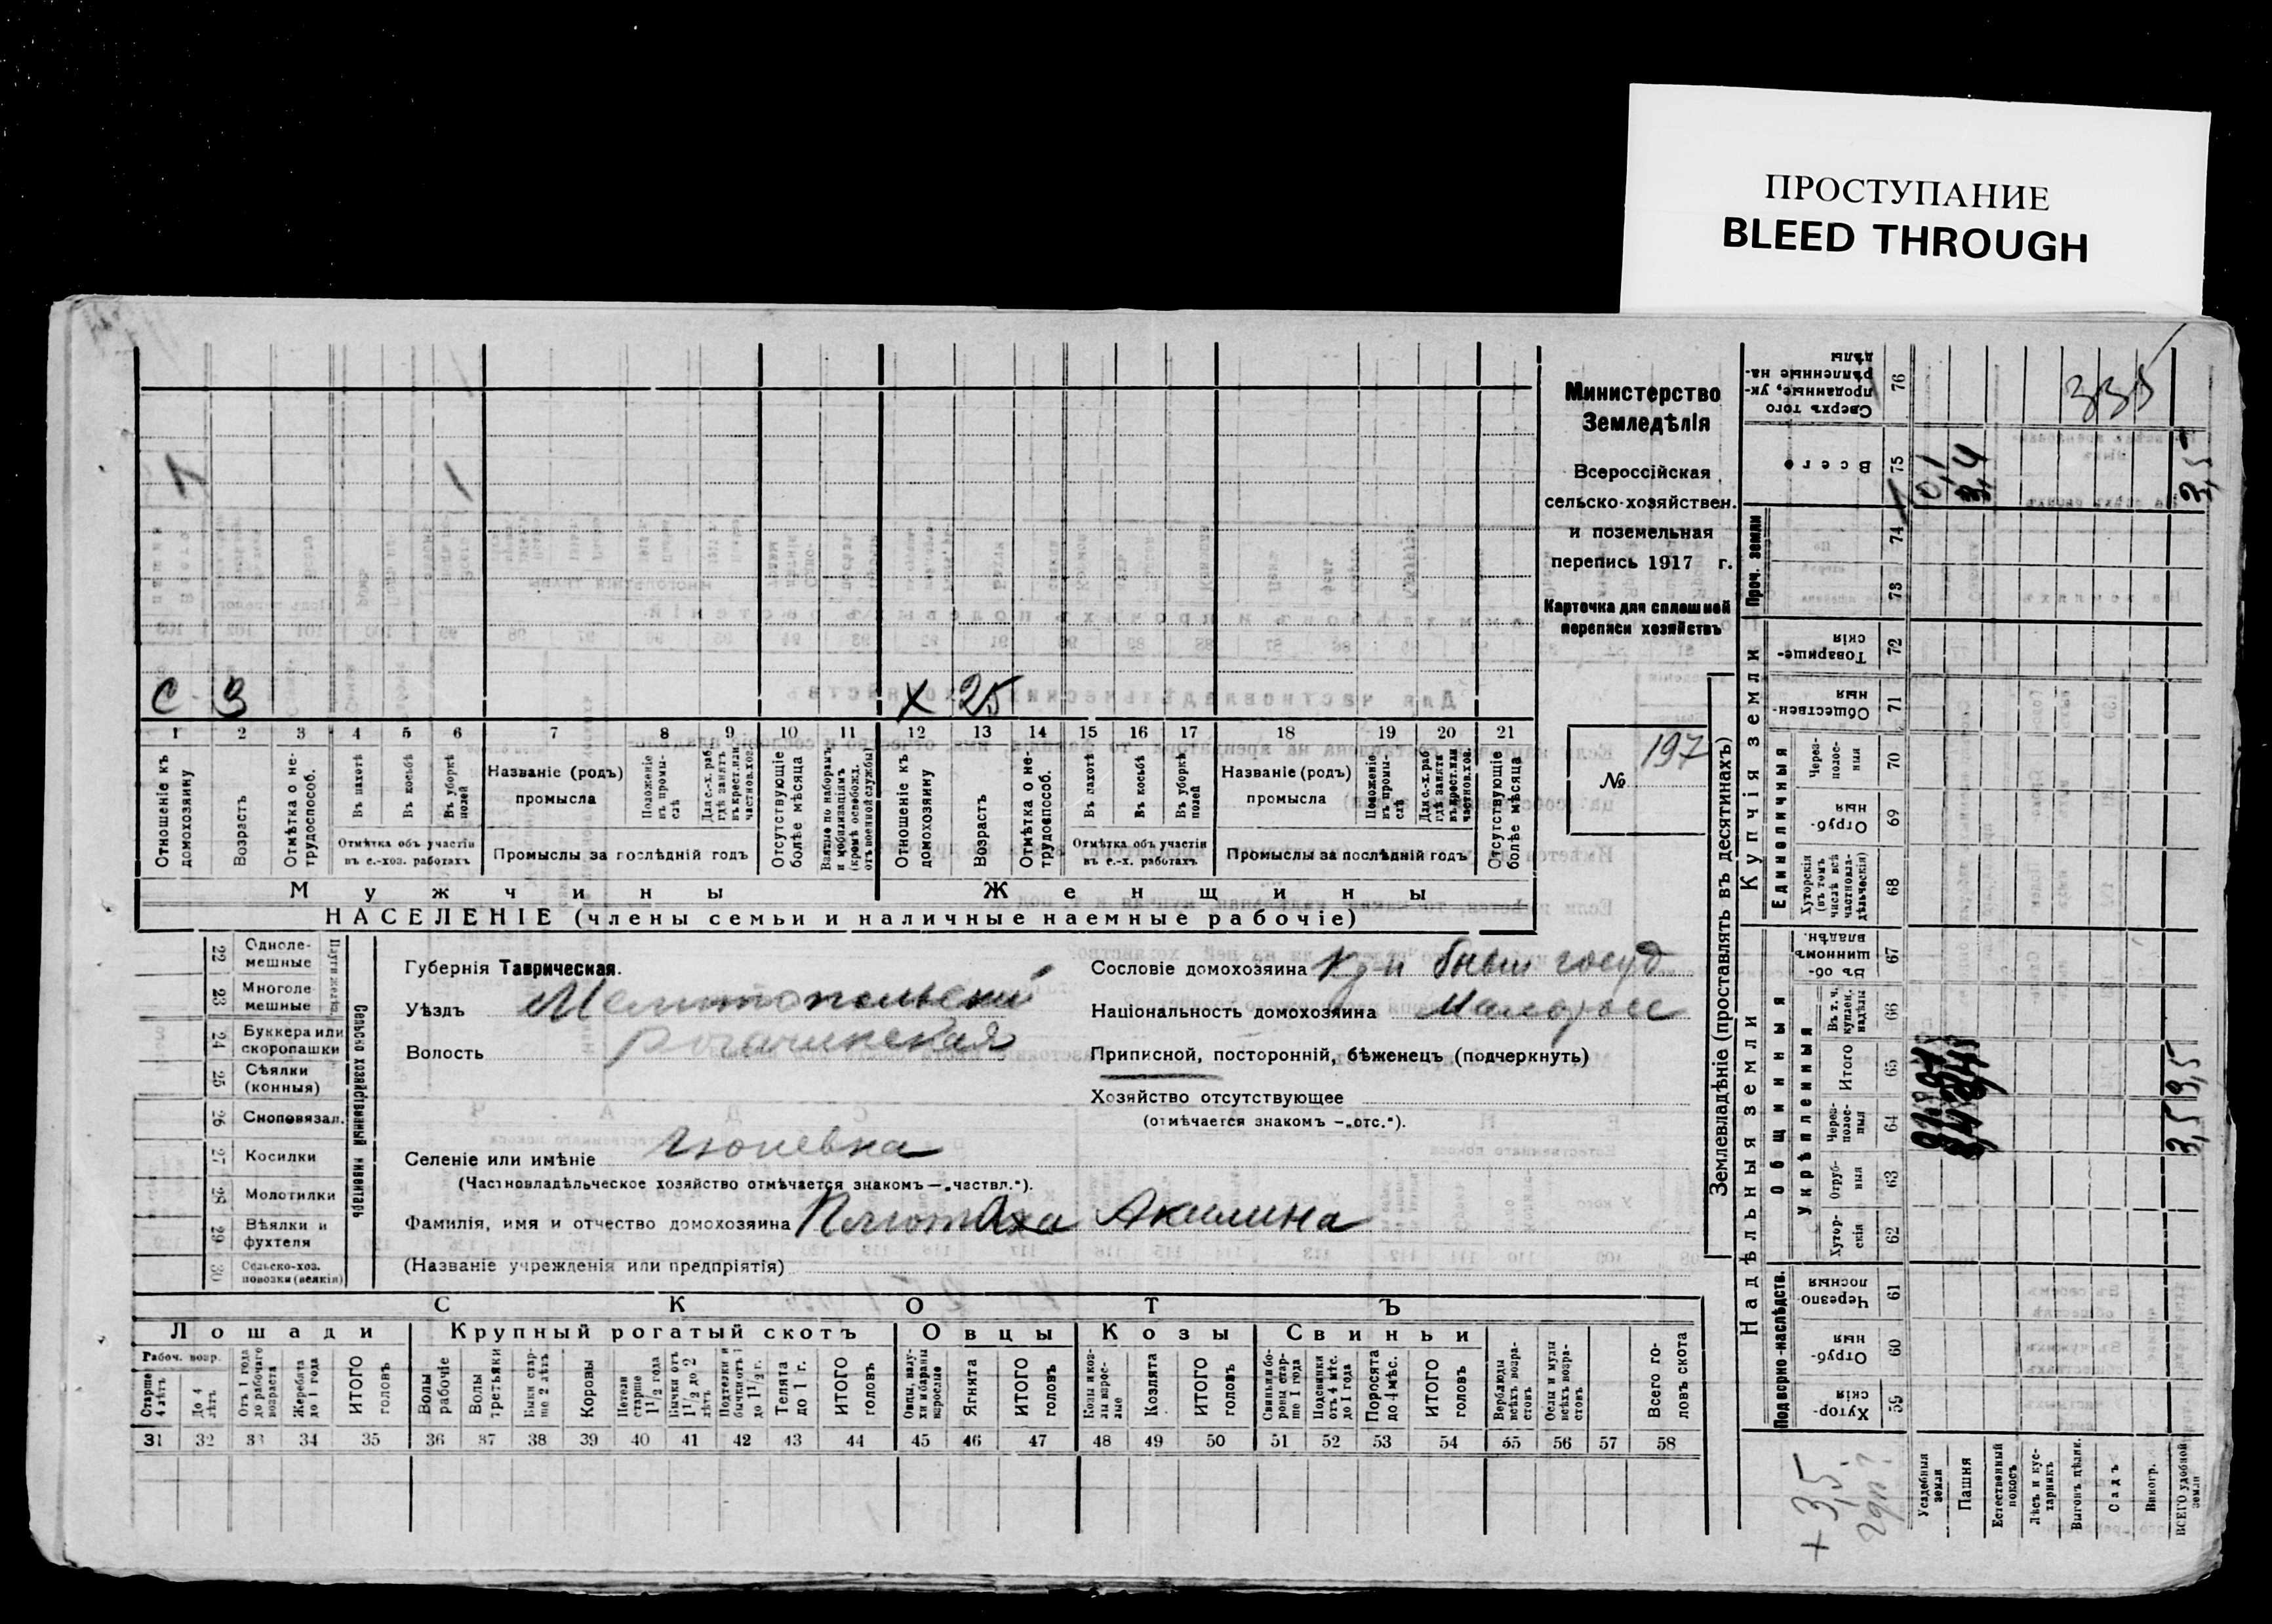 ПРОСТУПАНИЕ
BLEED THROUGH
Министерство
Земледѣлія
Всероссійская
сельско-хозяйствен.
и поземельная
перепись 1917 г.
Карточка для сплошной
переписи хозяйствъ
№ 197
С 3
Х 25
1 2 3 4 5 6 7 8 9 10 11 12 13 14 15 16 17 18 19 20 21
Отношеніе къ домохозяину
Возрастъ
Отмѣтка о не-трудоспособ.
Въ пахотѣ
Въ косьбѣ
Въ уборкѣ полей
Отмѣтка объ участіи
въ с.-хоз. работахъ
Названіе (родъ)
промысла
Положеніе въ промы-слѣ
Для с.-х. раб. гдѣ занятъ въ крест. или частнов. хоз.
Промыслы за послѣдній годъ
Отсутствующіе болѣе мѣсяца
Взятые по наборамъ и мобилизаціямъ (кромѣ освобожд. отъ военной службы)
Отношеніе къ домохозяину
Возрастъ
Отмѣтка о не-трудоспособ.
Въ пахотѣ
Въ косьбѣ
Въ уборкѣ полей
Отмѣтка объ участіи
въ с.-х. работахъ
Названіе (родъ)
промысла
Положеніе въ промы-слѣ
Для с.-х. раб. гдѣ занята въ крест. или частнов. хоз.
Промыслы за послѣдній годъ
Отсутствующіе болѣе мѣсяца
Мужчины
Женщины
НАСЕЛЕНІЕ (члены семьи и наличные наемные рабочіе)
22 Однолемешные
23 Многолемешные
24 Буккера или скоропашки
25 Сѣялки (конныя)
26 Сноповязал.
27 Косилки
28 Молотилки
29 Вѣялки и фухтеля
30 Сельско-хоз. повозки (всякія)
Сельско хозяйственный инвентарь
Губернія Таврическая.
Уѣздъ Мелитопольскій
Волость Рогачикская
Селеніе или имѣніе
(Частновладѣльческое хозяйство отмѣчается знакомъ—„частвл.“).
Фамилія, имя и отчество домохозяина Плютаха Акилина
(Названіе учрежденія или предпріятія)
Сословіе домохозяина Кр-н бывш госуд
Національность домохозяина Малоросс
Приписной, посторонній, бѣженецъ (подчеркнуть)
Хозяйство отсутствующее
(отмѣчается знакомъ —„отс.“).
СКОТЪ
Лошади
Крупный рогатый скотъ
Овцы
Козы
Свиньи
Рабоч. возр.
Старше 4 лѣтъ
До 4 лѣтъ
Отъ 1 года до рабочаго возраста
Жеребята до 1 года
ИТОГО головъ
Волы рабочіе
Волы третьяки
Быки старше 2 лѣтъ
Коровы
Нетели старше 1 1/2 года
Бычки отъ 1 1/2 до 2 лѣтъ
Подтелки и бычки отъ 1 до 1 1/2 г.
Телята до 1 г.
ИТОГО головъ
Овцы, валухи и бараны взрослые
Ягнята
ИТОГО головъ
Козы и козлы взрослые
Козлята
ИТОГО головъ
Свиньи и боровы старше 1 года
Подсвинки отъ 4 мѣс. до 1 года
Поросята до 4 мѣс.
ИТОГО головъ
Верблюды всѣхъ возрастовъ
Ослы и мулы всѣхъ возрастовъ
Всего головъ скота
31 32 33 34 35 36 37 38 39 40 41 42 43 44 45 46 47 48 49 50 51 52 53 54 55 56 57 58
Землевладѣніе (проставлять въ десятинахъ)
Надѣльныя земли
Купчія земли
Проч. земли
Подворно-наслѣдств.
Общинныя
Укрѣпленныя
Единоличныя
Хуторскія 59
Отрубныя 60
Черезполосныя 61
Хуторскія 62
Отрубныя 63
Черезполосныя 64
Итого 65
Въ т. ч. куплен. надѣлы 66
Въ общинномъ владѣн. 67
Хуторскія (въ томъ числѣ всѣ частновладѣльческія) 68
Отрубныя 69
Черезполосныя 70
Общественныя 71
Товарищескія 72
73
74
Всего 75
Сверхъ того проданные, укрѣпленные надѣлы 76
Усадебныя земли
Пашня
Естественный покосъ
Лѣсъ и кустарникъ
Выгонъ цѣлин.
Садъ
Виногр.
ВСЕГО удобной земли
0,1
3,4
335
3,5
3,5
3,5
+ 3,5